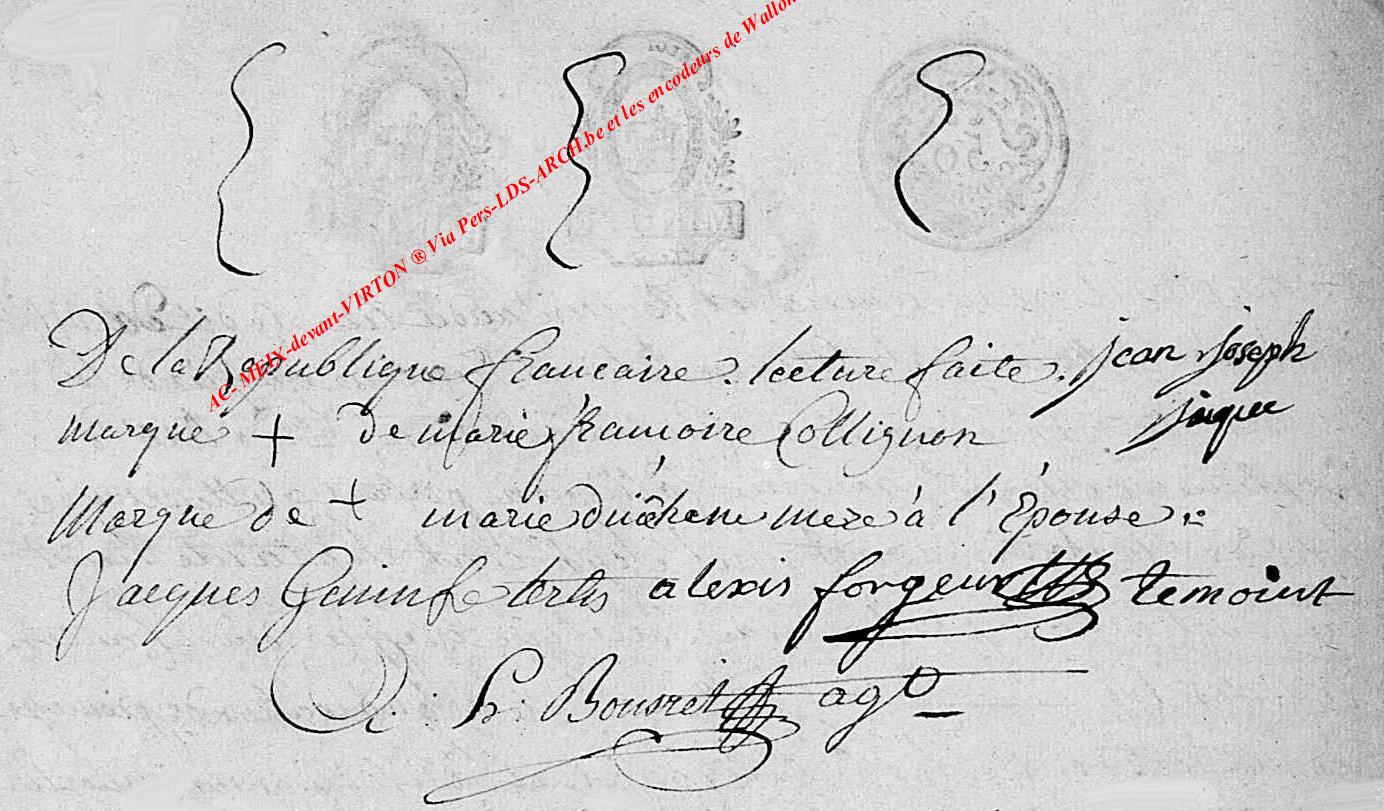 AC- MEIX-devant-VIRTON ® Via Pers-LDS-ARCH.be et les encodeurs de Wallon
De la Republique francaire . lecture faite . jean joseph
marque + de marie francoire Collignon jaque
Marque de + marie duchene mere à l'Épouse
Jacques testis alexis forgeur temoint
Bousret agt